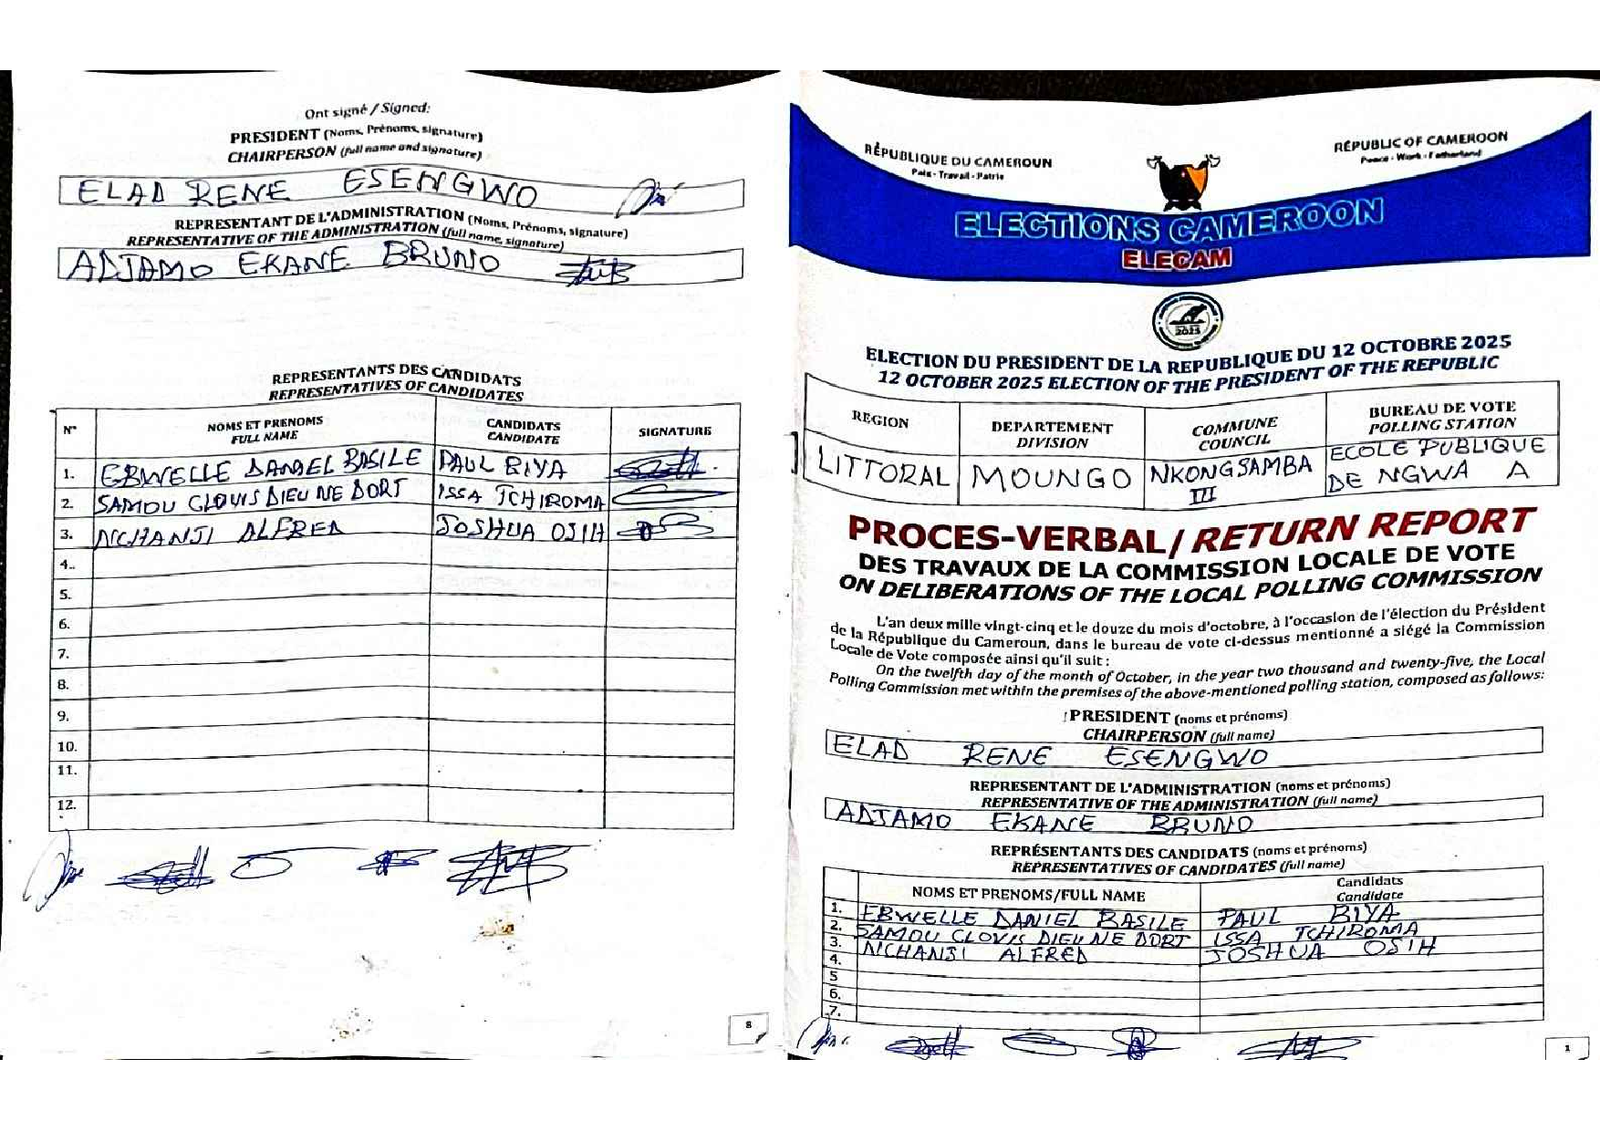 Ont signé / Signed:
PRESIDENT (Noms, Prénoms, signature)
CHAIRPERSON (full name and signature)
ELAD RENE ESENGWO
REPRESENTANT DE L'ADMINISTRATION (Noms, Prénoms, signature)
REPRESENTATIVE OF THE ADMINISTRATION (full name, signature)
ADJAMO EKANE BRUNO
REPRESENTANTS DES CANDIDATS
REPRESENTATIVES OF CANDIDATES
N° NOMS ET PRENOMS FULL NAME CANDIDATS CANDIDATE SIGNATURE
1. EBWELLE DANIEL BASILE PAUL BIYA
2. SAMOU CLOVIS DIEU NE DORT ISSA TCHIROMA
3. NCHANJI ALFRED JOSHUA OSIH
4..
5.
6.
7.
8.
9.
10.
11.
12.
8
RÉPUBLIQUE DU CAMEROUN
Paix - Travail - Patrie
RÉPUBLIC OF CAMEROON
Peace - Work - Fatherland
ELECTIONS CAMEROON
ELECAM
2025
ELECTION DU PRESIDENT DE LA REPUBLIQUE DU 12 OCTOBRE 2025
12 OCTOBER 2025 ELECTION OF THE PRESIDENT OF THE REPUBLIC
REGION DEPARTEMENT DIVISION COMMUNE COUNCIL BUREAU DE VOTE POLLING STATION
LITTORAL MOUNGO NKONGSAMBA III ECOLE PUBLIQUE DE NGWA A
PROCES-VERBAL/ RETURN REPORT
DES TRAVAUX DE LA COMMISSION LOCALE DE VOTE
ON DELIBERATIONS OF THE LOCAL POLLING COMMISSION
L'an deux mille vingt-cinq et le douze du mois d'octobre, à l'occasion de l'élection du Président
de la République du Cameroun, dans le bureau de vote ci-dessus mentionné a siégé la Commission
Locale de Vote composée ainsi qu'il suit :
On the twelfth day of the month of October, in the year two thousand and twenty-five, the Local
Polling Commission met within the premises of the above-mentioned polling station, composed as follows:
PRESIDENT (noms et prénoms)
CHAIRPERSON (full name)
ELAD RENE ESENGWO
REPRESENTANT DE L'ADMINISTRATION (noms et prénoms)
REPRESENTATIVE OF THE ADMINISTRATION (full name)
ADJAMO EKANE BRUNO
REPRÉSENTANTS DES CANDIDATS (noms et prénoms)
REPRESENTATIVES OF CANDIDATES (full name)
NOMS ET PRENOMS/FULL NAME Candidats Candidate
1. EBWELLE DANIEL BASILE PAUL BIYA
2. SAMOU CLOVIS DIEU NE DORT ISSA TCHIROMA
3. NCHANJI ALFRED JOSHUA OSIH
4.
5
6.
7.
1